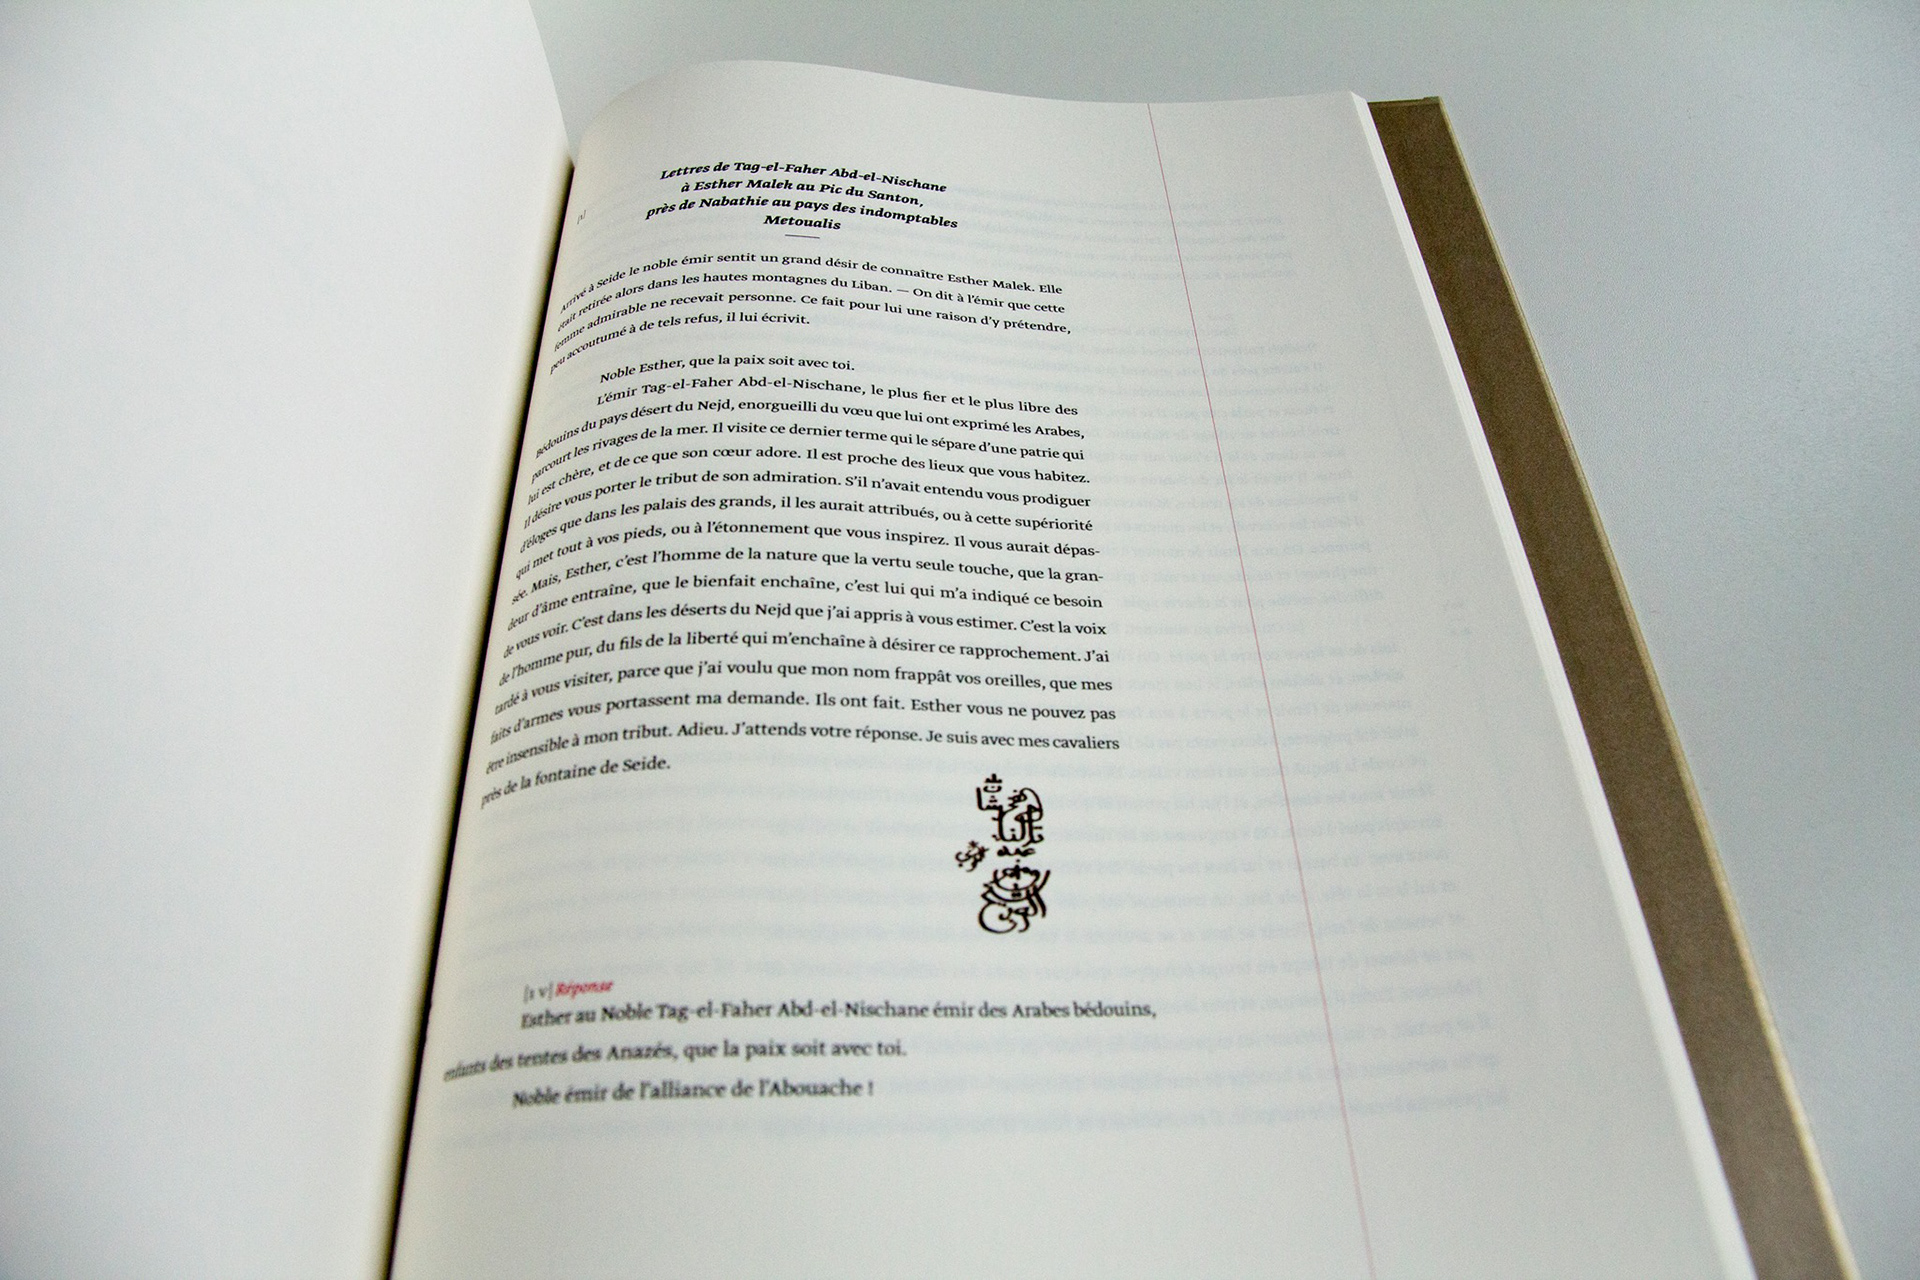 Lettres de Tag-el-Faher Abd-el-Nischane
à Esther Malek au Pic du Santon,
près de Nabathie au pays des indomptables
Metoualis
Arrivé à Seide le noble émir sentit un grand désir de connaître Esther Malek. Elle
était retirée alors dans les hautes montagnes du Liban. — On dit à l’émir que cette
femme admirable ne recevait personne. Ce fait pour lui une raison d’y prétendre,
peu accoutumé à de tels refus, il lui écrivit.
Noble Esther, que la paix soit avec toi.
L’émir Tag-el-Faher Abd-el-Nischane, le plus fier et le plus libre des
Bédouins du pays désert du Nejd, enorgueilli du vœu que lui ont exprimé les Arabes,
parcourt les rivages de la mer. Il visite ce dernier terme qui le sépare d’une patrie qui
lui est chère, et de ce que son cœur adore. Il est proche des lieux que vous habitez.
Il désire vous porter le tribut de son admiration. S’il n’avait entendu vous prodiguer
d’éloges que dans les palais des grands, il les aurait attribués, ou à cette supériorité
qui met tout à vos pieds, ou à l’étonnement que vous inspirez. Il vous aurait dépas-
sée. Mais, Esther, c’est l’homme de la nature que la vertu seule touche, que la gran-
deur d’âme entraîne, que le bienfait enchaîne, c’est lui qui m’a indiqué ce besoin
de vous voir. C’est dans les déserts du Nejd que j’ai appris à vous estimer. C’est la voix
de l’homme pur, du fils de la liberté qui m’enchaîne à désirer ce rapprochement. J’ai
tardé à vous visiter, parce que j’ai voulu que mon nom frappât vos oreilles, que mes
faits d’armes vous portassent ma demande. Ils ont fait. Esther vous ne pouvez pas
être insensible à mon tribut. Adieu. J’attends votre réponse. Je suis avec mes cavaliers
près de la fontaine de Seide.
[1 v] Réponse
Esther au Noble Tag-el-Faher Abd-el-Nischane émir des Arabes bédouins,
enfants des tentes des Anazés, que la paix soit avec toi.
Noble émir de l’alliance de l’Abouache !